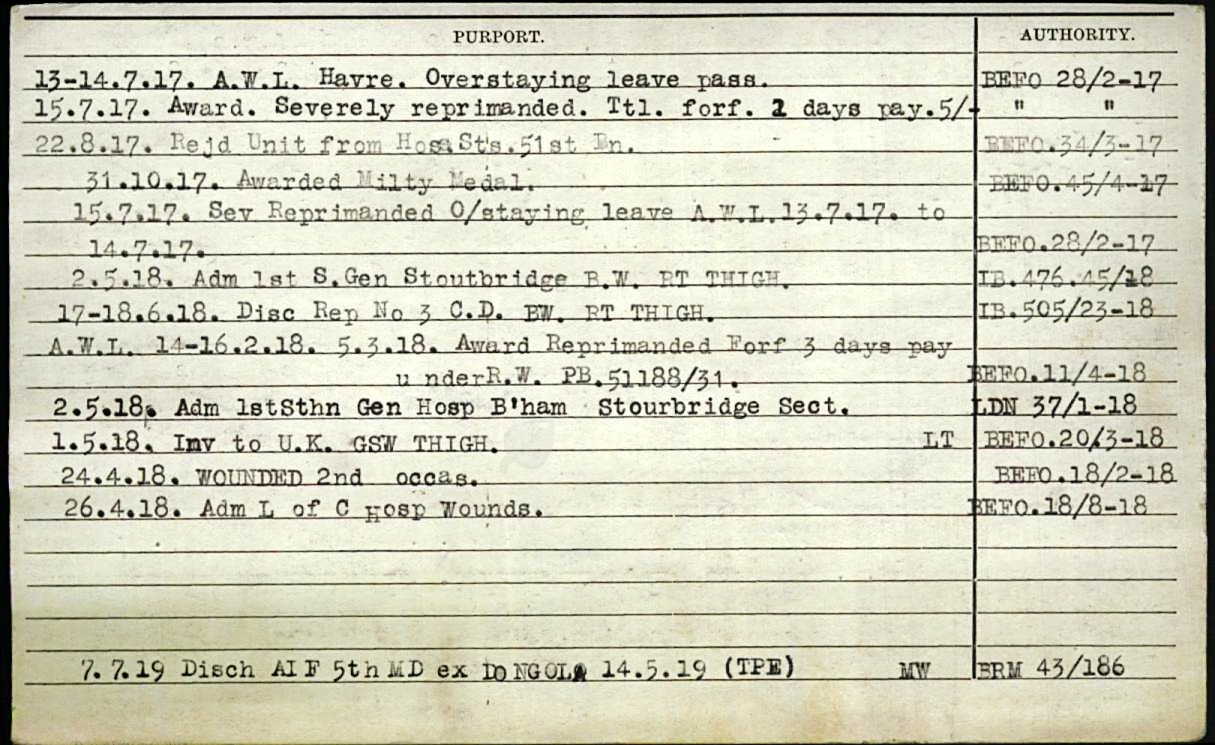 PURPORT. AUTHORITY.
13-14.7.17. A.W.L. Havre. Overstaying leave pass. BEFO 28/2-17
15.7.17. Award. Severely reprimanded. Ttl. forf. 2 days pay.5/- " "
22.8.17. Rejd Unit from Hosp Sts.51st Bn. BEFO.34/3-17
31.10.17. Awarded Milty Medal. BEFO.45/4-17
15.7.17. Sev Reprimanded O/staying leave A.W.L.13.7.17. to
14.7.17. BEFO.28/2-17
2.5.18. Adm 1st S.Gen Stoutbridge B.W. RT THIGH. IB.476.45/18
17-18.6.18. Disc Rep No 3 C.D. BW. RT THIGH. IB.505/23-18
A.W.L. 14-16.2.18. 5.3.18. Award Reprimanded Forf 3 days pay
u nderR.W. PB.51188/31. BEFO.11/4-18
2.5.18. Adm 1stSthn Gen Hosp B'ham Stourbridge Sect. LDN 37/1-18
1.5.18. Inv to U.K. GSW THIGH. LT BEFO.20/3-18
24.4.18. WOUNDED 2nd occas. BEFO.18/2-18
26.4.18. Adm L of C Hosp Wounds. BEFO.18/8-18
7.7.19 Disch AIF 5th MD ex DONGOLA 14.5.19 (TPE) MW BRM 43/186